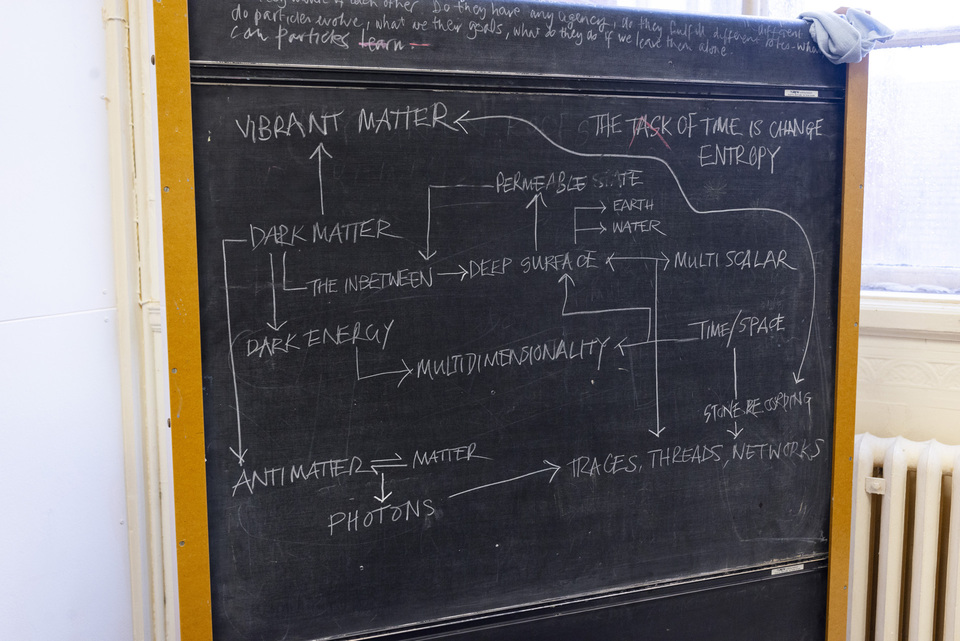 of each other Do they have any agency, do they fulfill different
do particles evolve, what are their goals, what do they do if we leave them alone
Can particles learn
VIBRANT MATTER
THE TASK OF TIME IS CHANGE
ENTROPY
PERMEABLE STATE
EARTH
WATER
DARK MATTER
THE INBETWEEN
DEEP SURFACE
MULTI SCALAR
DARK ENERGY
MULTIDIMENSIONALITY
TIME/SPACE
STONE RECORDING
ANTIMATTER
MATTER
TRACES, THREADS, NETWORKS
PHOTONS